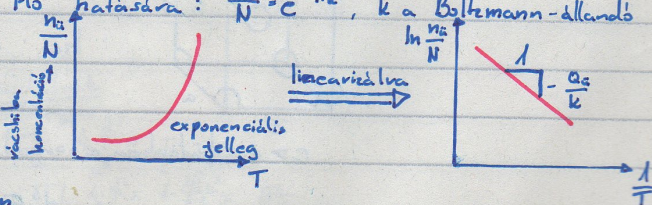 hatására: n_ü/N = e , k a Boltzmann-állandó
n_ü/N
rácshiba
koncentráció
exponenciális
jelleg
T
linearizálva
ln n_ü/N
1
- Q_ü/k
1/T